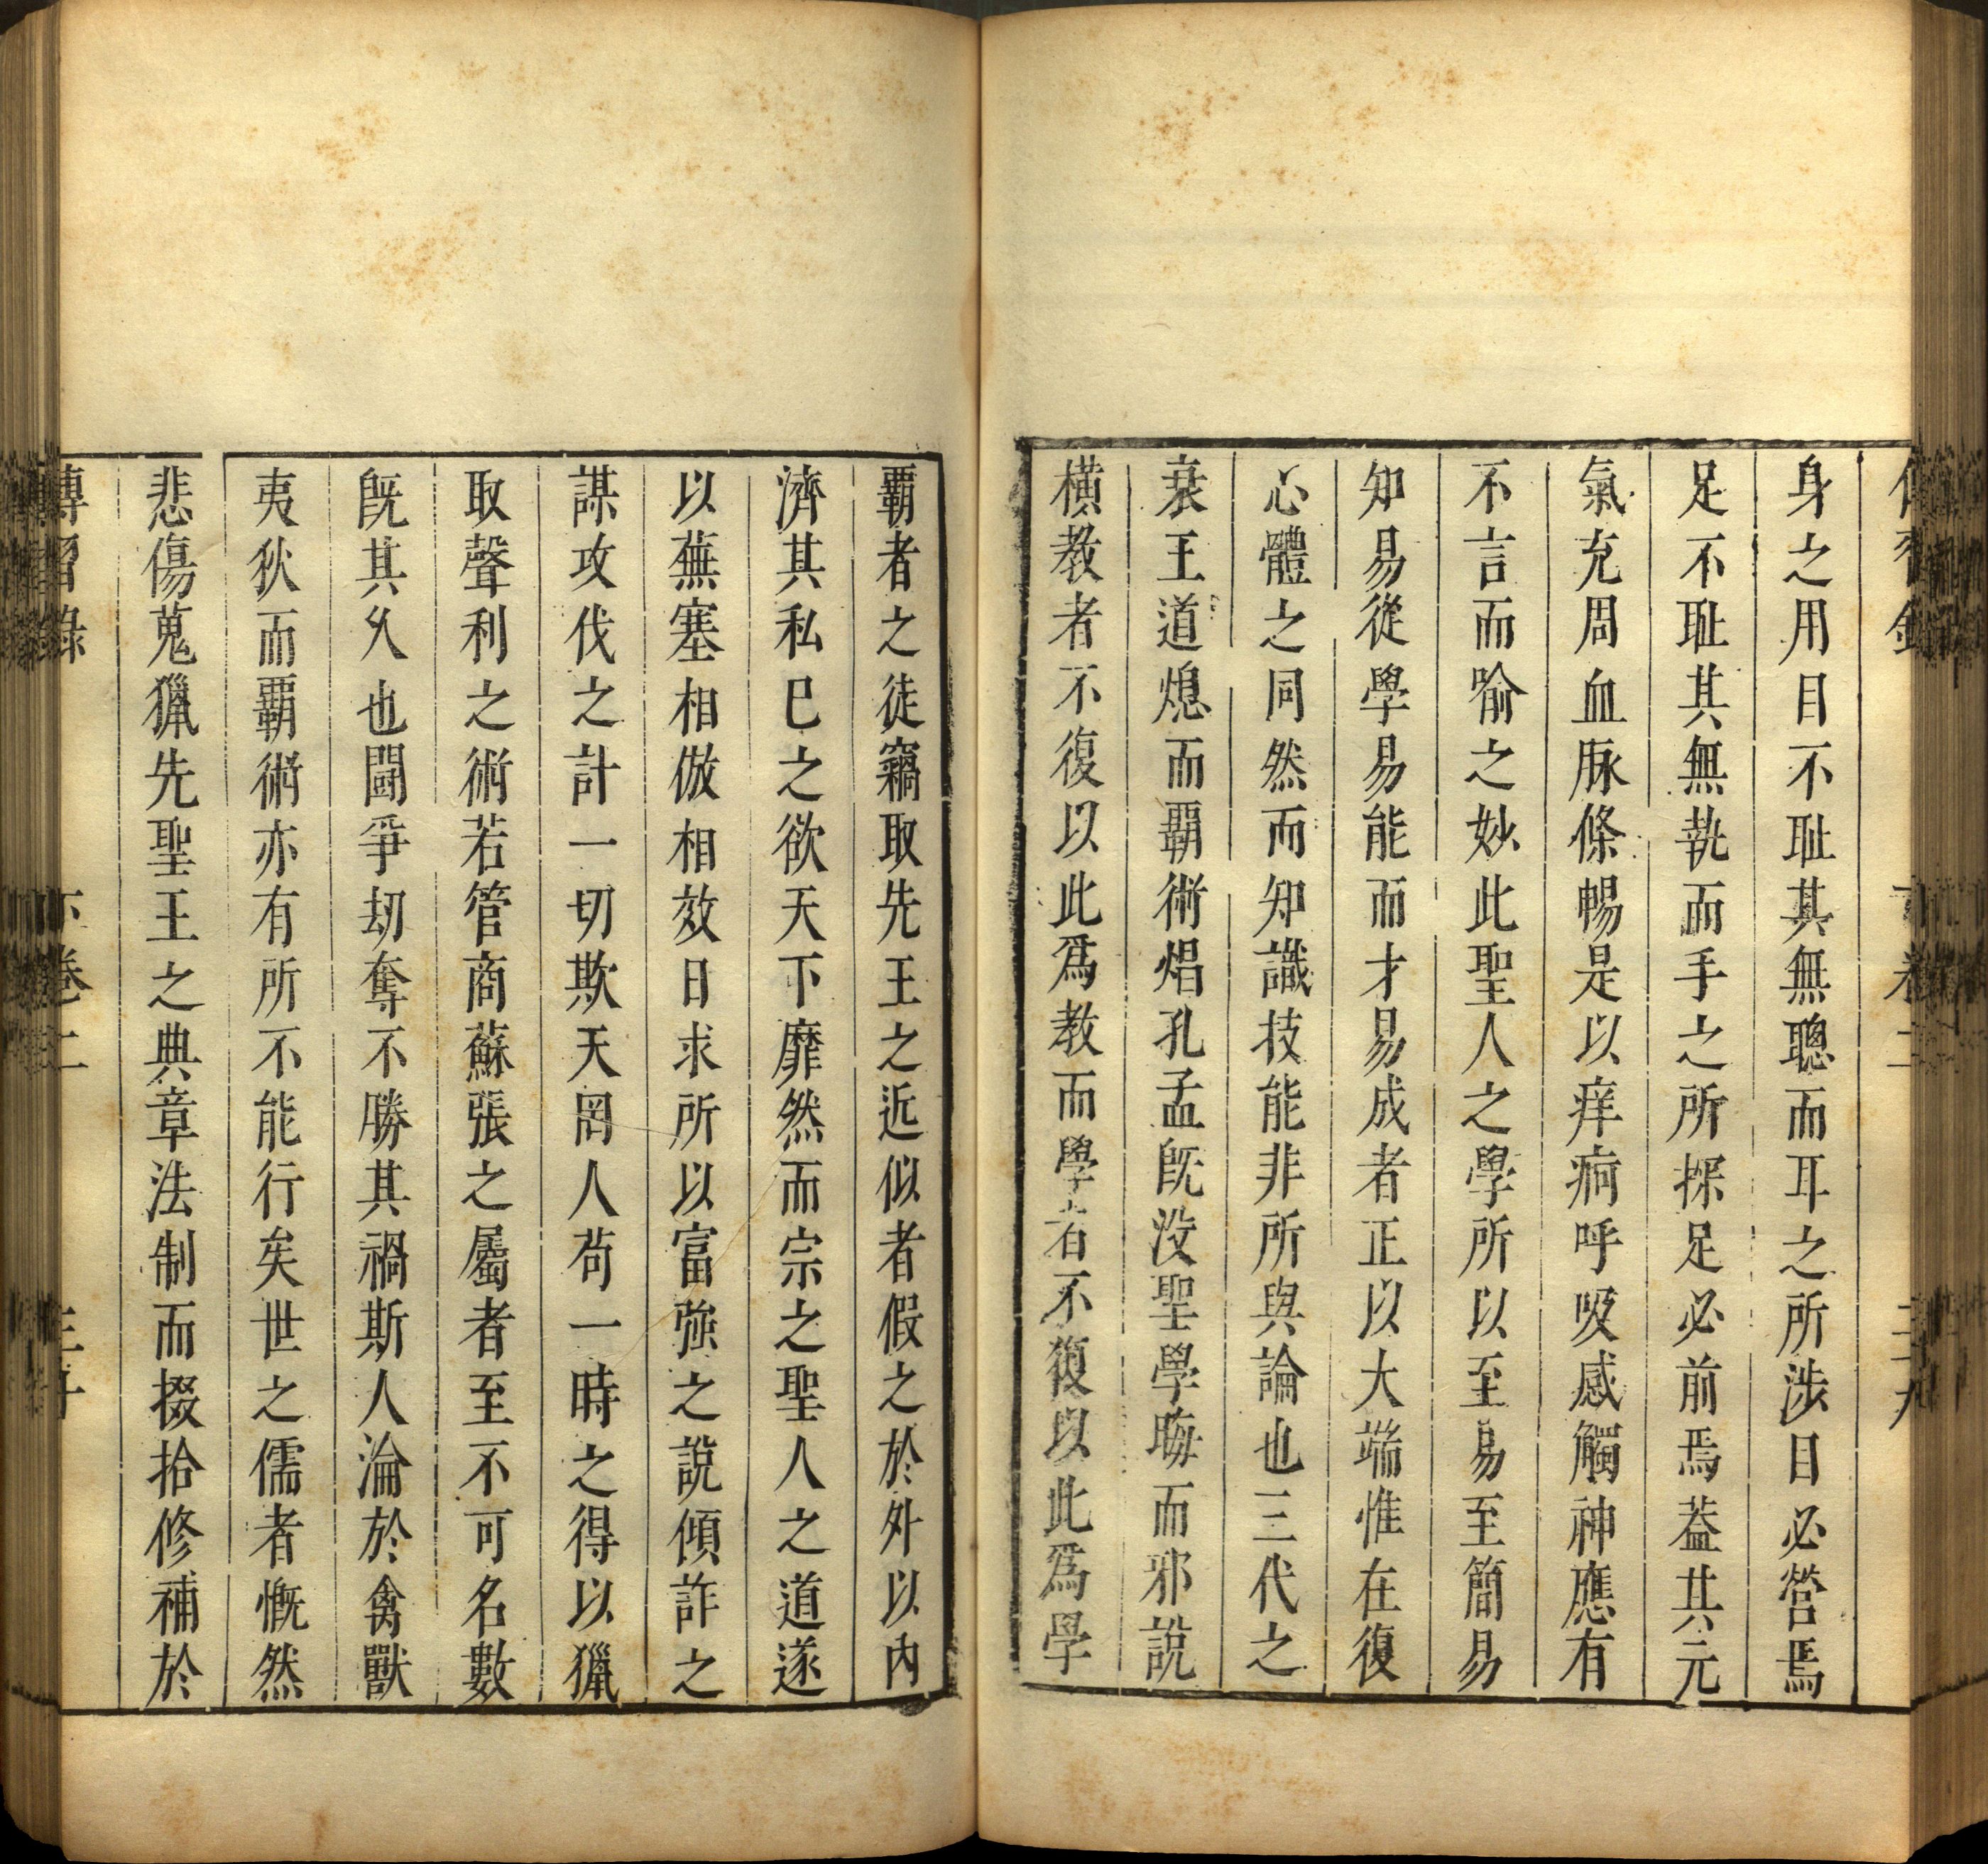 身之用目不耻其無聰而耳之所涉目必營焉
足不耻其無執而手之所探足必前焉葢其元
氣充周血脉條暢是以痒疴呼吸感觸神應有
不言而喻之妙此聖人之學所以至易至簡易
知易從學易能而才易成者正以大端惟在復
心體之同然而知識技能非所與論也三代之
衰王道熄而覇術焻孔孟旣没聖學晦而邪說
橫教者不復以此爲教而學者不復以此爲學
覇者之徒竊取先王之近似者假之於外以内
濟其私已之欲天下靡然而宗之聖人之道遂
以蕪塞相倣相效日求所以富強之說傾詐之
謀攻伐之計一切欺天罔人苟一時之得以獵
取聲利之術若管商蘇張之屬者至不可名數
旣其久也鬪爭刼奪不勝其禍斯人淪於禽獸
夷狄而覇術亦有所不能行矣世之儒者慨然
悲傷蒐獵先聖王之典章法制而掇拾修補於
傳習錄 下卷二 三十